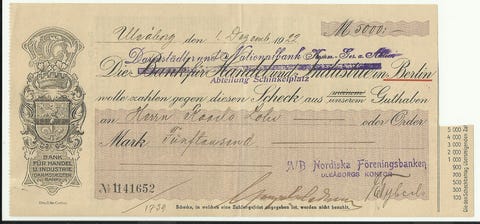 Uleåborg den 1 Dezemb 1922
M 5000:-
Darmstädter und Nationalbank Kom. Ges. a. Aktien
Die Bank für Handel und Industrie in Berlin
Abteilung Schinkelplatz
wolle zahlen gegen diesen Scheck aus unserem Guthaben
an Herrn Kaarlo oder Order
Mark Fünftausend
A/B Nordiska Föreningsbanken
ULEÅBORGS KONTOR
BANK
FÜR HANDEL
U. INDUSTRIE
(DARMSTÄDTER
BANK)
№ 1141652
1739
Schecks, in welchen eine Zahlungsfrist angegeben ist, werden nicht bezahlt.
5 000
4 000
3 000
2 000
1 000
900
700
500
400
300
100